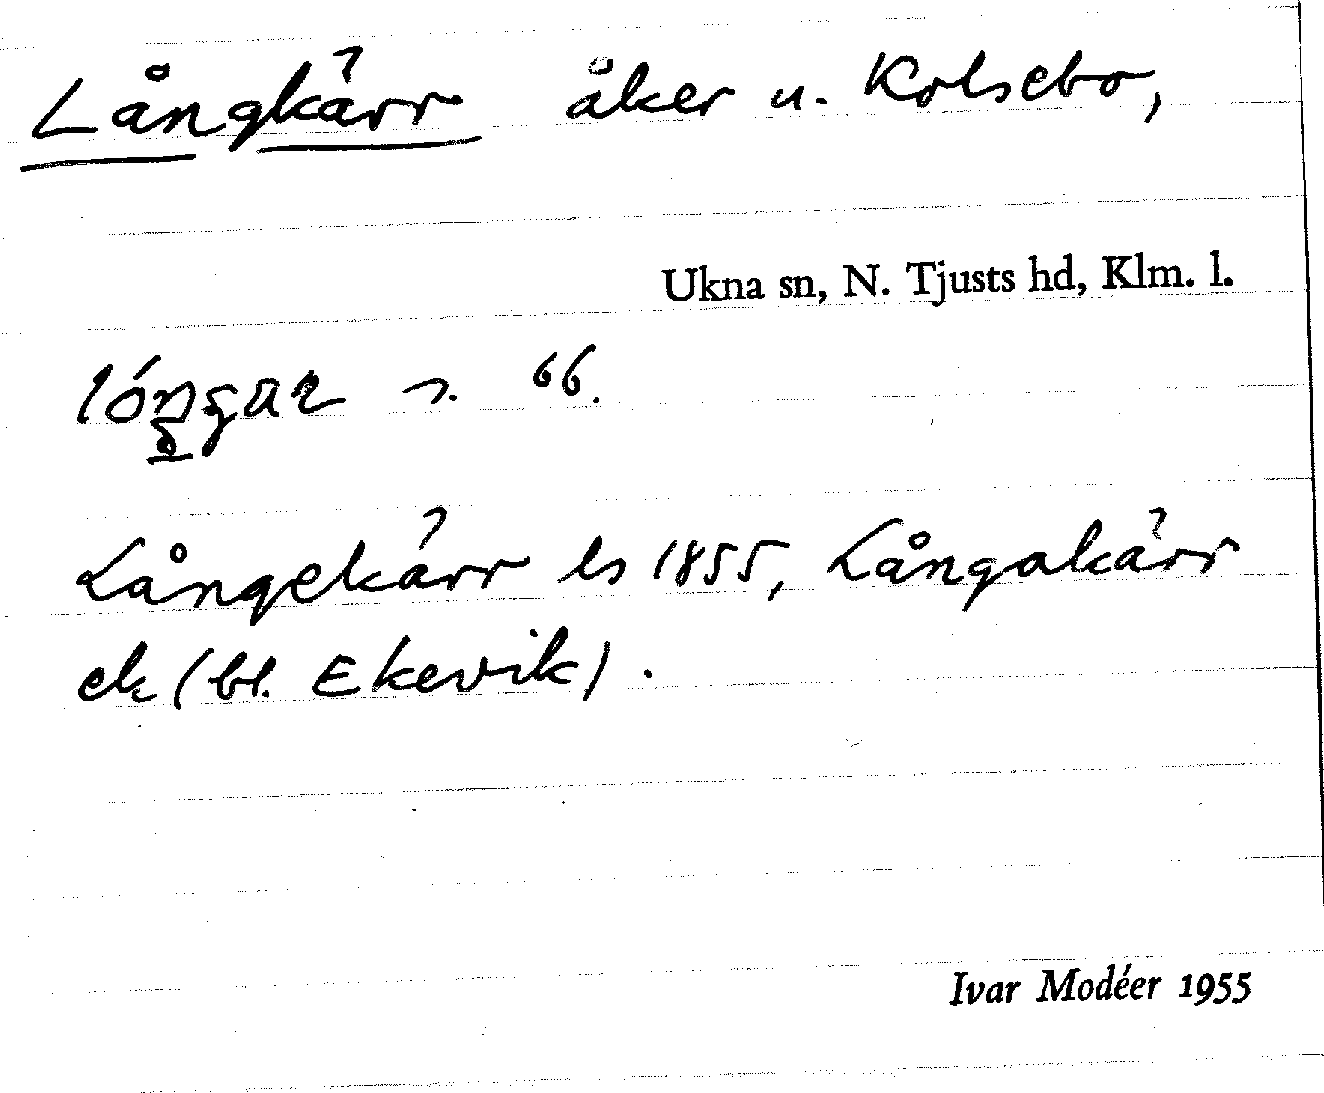 Långkärr åker u. Kolsebo,
Ukna sn, N. Tjusts hd, Klm. l.
n. 66.
Långekärr ls 1855, Långakärr
ek (bl. Ekevik).
Ivar Modéer 1955